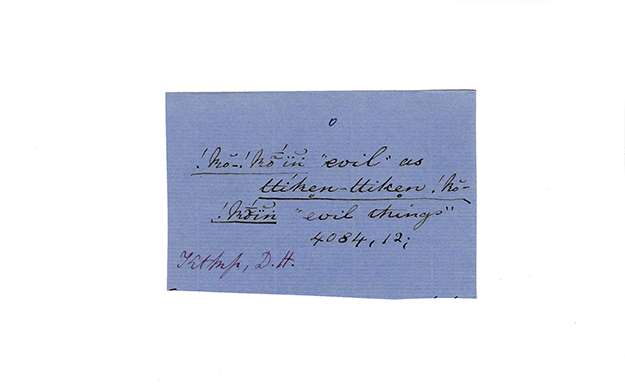 o
!kŏ-!kṓïn̆ "evil" as
ttíkẹn-ttikẹn !kŏ-
!kṓïn̆ "evil things"
4084, 12;
D.H.